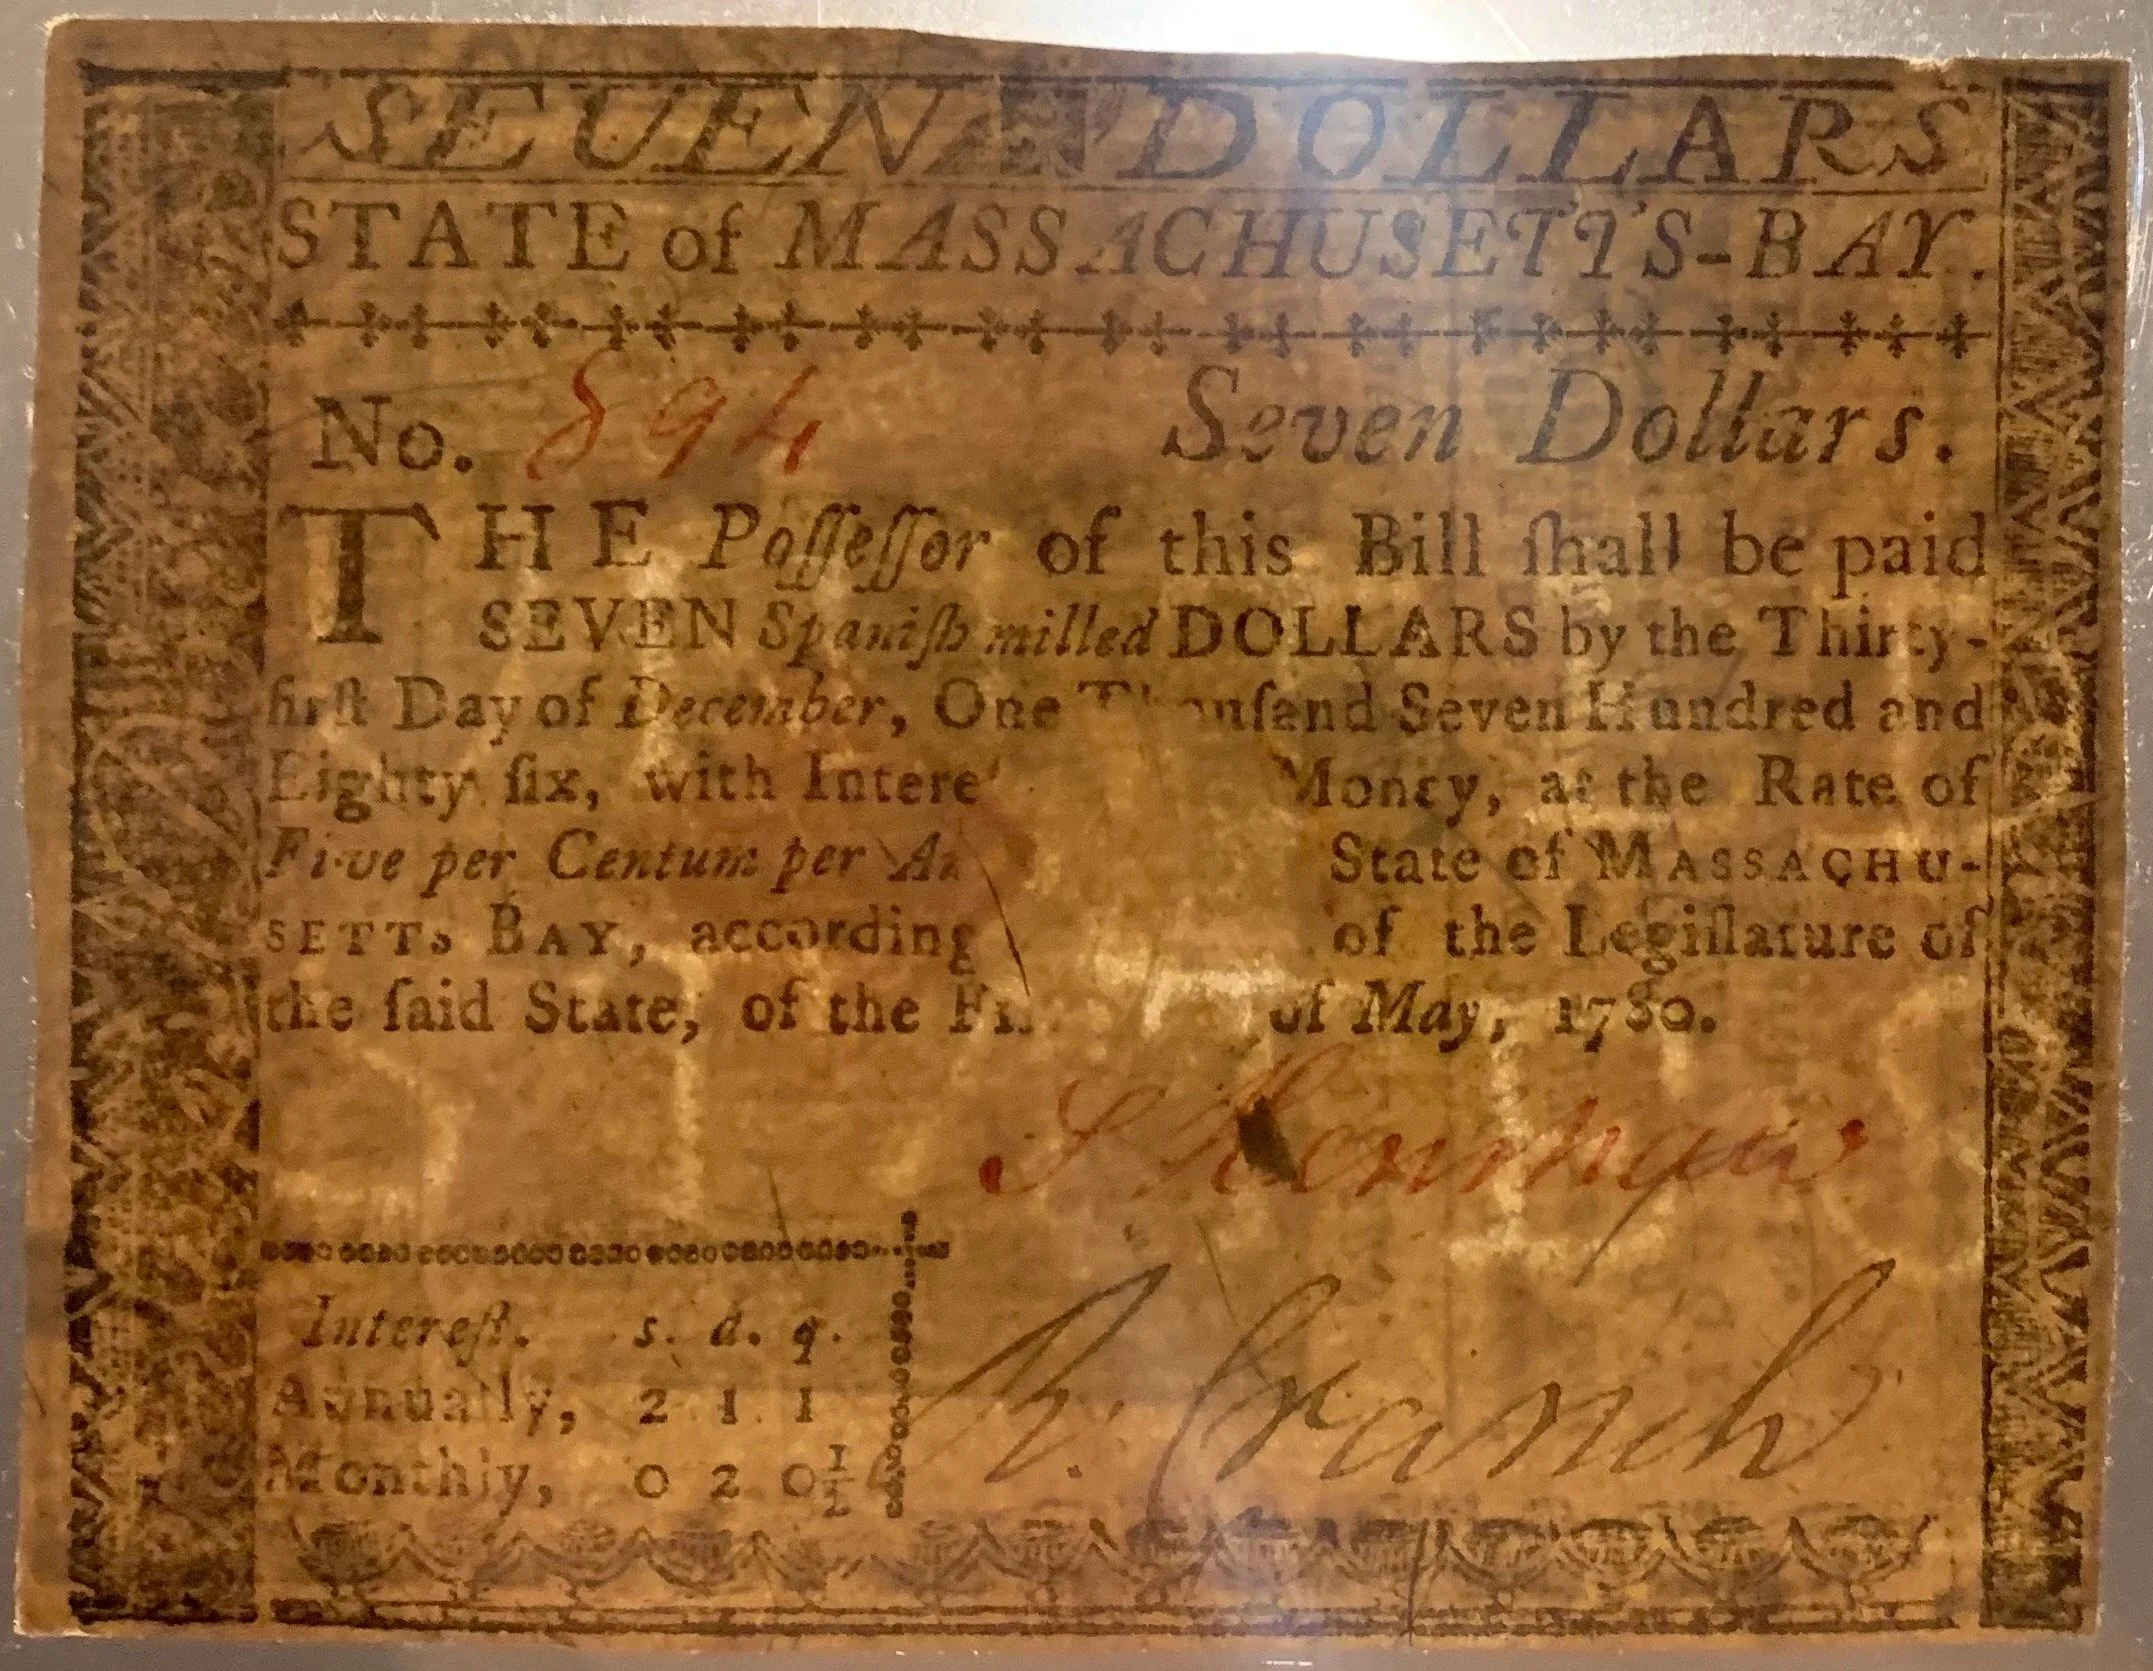 SEVEN DOLLARS
STATE of MASSACHUSETTS-BAY.
No. 894 Seven Dollars.
THE Poſſeſſor of this Bill ſhall be paid
SEVEN Spaniſh milled DOLLARS by the Thirty-
firſt Day of December, One Thouſand Seven Hundred and
Eighty ſix, with Intere Money, at the Rate of
Five per Centum per An State of MASSACHU-
SETTS BAY, according of the Legiſlature of
the ſaid State, of the Fi of May, 1780.
R. Cranch
Intereſt. s. d. q.
Annually, 2 1 1
Monthly, 0 2 0½